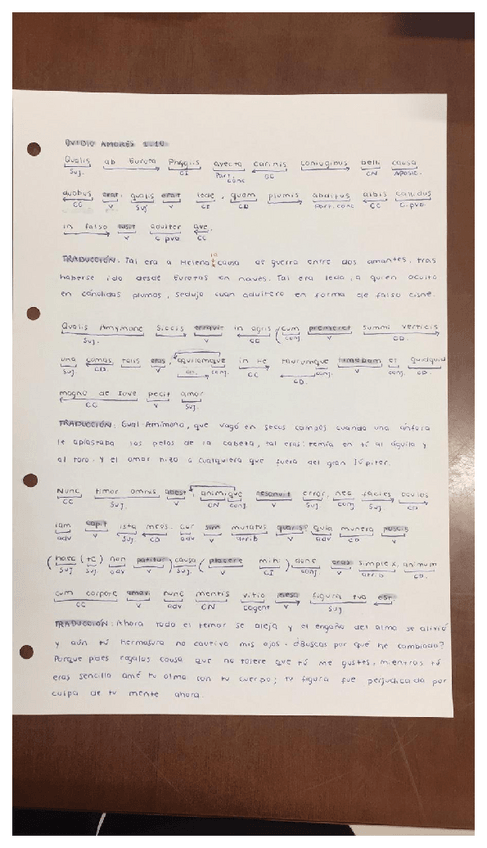 OVIDIO AMORES 1.10
Qualis ab Eurota Phrygiis avecta carinis coniugibus belli causa
Suj. CC Part. conc CC CN Aposic.
duobus erat, qualis erat Lede, quam plumis abditus albis
CC V Suj V CD CC Part. conc CC
in falso adulter ave.
V C. pvo CC
TRADUCCIÓN: Tal era a Helena causa de guerra entre dos amantes, tras
haberse ido desde Eurotas en naves. Tal era Leda, a quien oculto
en cándidas plumas, sedujo cuan adultero en forma de falso cisne.
Qualis Amymone siccis erravit in agris (cum premeret summi verticis
Suj. V CC conj V CD.
urna comas, talis eras, aquilamque in te taurumque timebam et quidquid
Suj CD. V CD. conj. CC CD. conj. V conj CD.
magno de Iove fecit amor
CC V Suj.
TRADUCCIÓN: Cual Amimone, que vagó en secos campos cuando una ánfora
le aplastaba los pelos de la cabeza, tal eras: temía en tí al águila y
al toro. Y el amor hizo a cualquiera que fuera del gran Júpiter.
Nunc timor omnis abest, animique error, nec facies oculos
CC Suj. V CN conj V Suj conj Suj CD
iam capit ista meos. cur sim mutatus quaeris? quia munera poscis
adv V Suj CD adv atrib V adv CD V
(haec te) non patitur causa (placere mihi) donec eras simplex, animum
Suj Suj adv V Suj. V CI conj V atrib CD.
cum corpore amavi nunc mentis vitio laesa figura tua est
CC V adv CN Cagent V Suj
TRADUCCIÓN: Ahora todo el temor se aleja y el engaño del alma se alivió
y aún tú hermosura no cautiva mis ojos. ¿Buscas por qué he cambiado?
Porque pides regalos causa que no tolere que tú me gustes, mientras tú
eras sencillo amé tu alma con tu cuerpo; tu figura fue perjudicada por
culpa de tu mente ahora.